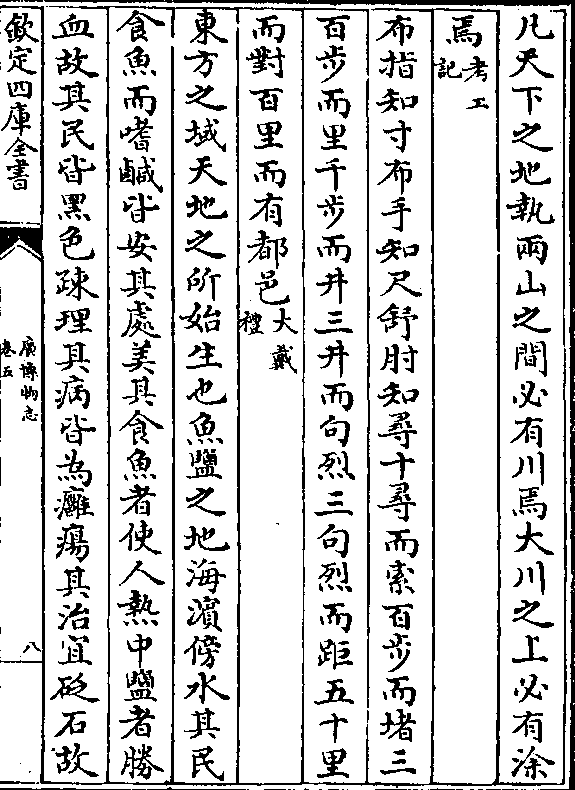 凡天下之地埶兩山之間必有川焉大川之上必有涂
焉考工記
布指知寸布手知尺舒肘知尋十尋而索百步而堵三
百步而里千步而井三井而句烈三句烈而距五十里
而對百里而有都邑大戴禮
東方之域天地之所始生也魚鹽之地海濱傍水其民
食魚而嗜鹹皆安其處美其食魚者使人熱中鹽者勝
血故其民皆黑色疎理其病皆為癰瘍其治宜砭石故
欽定四庫全書
廣博物志
卷五
八